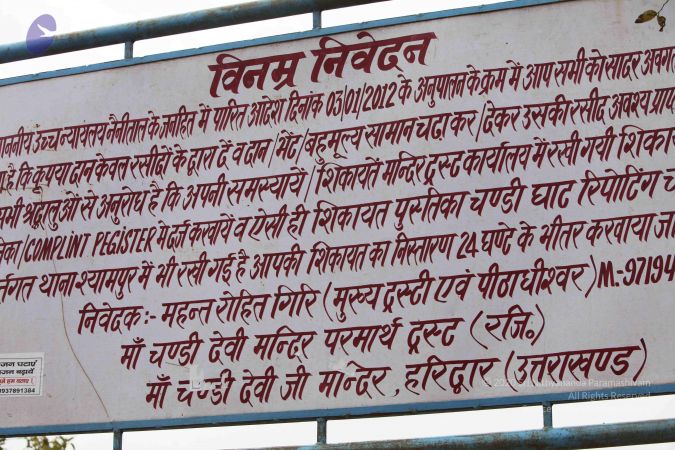 विनम्र निवेदन
माननीय उच्च न्यायालय नैनीताल के जनहित में पारित आदेश दिनांक 03/01/2012 के अनुपालन के क्रम में आप सभी को सादर अवगत
है कि कृपया दान केवल रसीदों के द्वारा दें व दान/भेंट/बहुमूल्य सामान चढ़ा कर/देकर उसकी रसीद अवश्य प्राप
सभी श्रद्धालुओं से अनुरोध है कि अपनी समस्यायें/शिकायतें मन्दिर ट्रस्ट कार्यालय में रखी गयी शिका
/COMPLINT REGISTER में दर्ज करवायें व ऐसी ही शिकायत पुस्तिका चण्डी घाट रिपोर्टिंग च
र्तगत थाना श्यामपुर में भी रखी गई है आपकी शिकायत का निस्तारण 24 घण्टे के भीतर करवाया जा
निवेदक:- महन्त रोहित गिरि (मुख्य ट्रस्टी एवं पीठाधीश्वर) M.:-97194
माँ चण्डी देवी मन्दिर परमार्थ ट्रस्ट (रजि॰)
माँ चण्डी देवी जी मन्दिर, हरिद्वार (उत्तराखण्ड)
वजन घटाएं
वजन बढ़ायें
9937891384
© 2020 Sri Nithyananda Paramashivam
All Rights Reserved